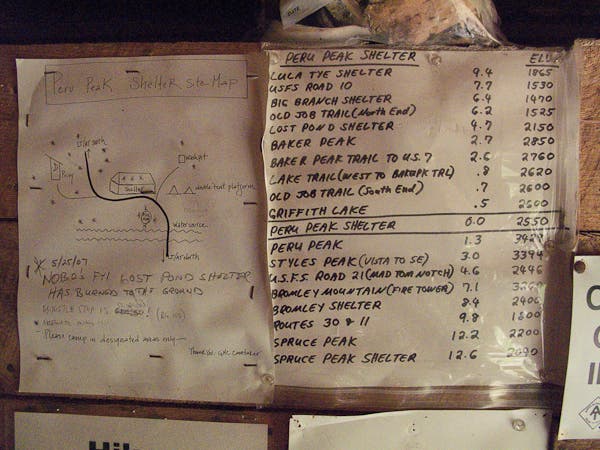 Peru Peak Shelter Site Map
Privy
washpit
Shelter
double tent platforms
water source
5/25/07
NOBO'S FYI LOST POND SHELTER
HAS BURNED TO THE GROUND
Please camp in designated areas only
Thank you. GMC Caretaker
PERU PEAK SHELTER
LULA TYE SHELTER 9.4 1865
USFS ROAD 10 7.7 1530
BIG BRANCH SHELTER 6.4 1470
OLD JOB TRAIL (North End) 6.2 1525
LOST POND SHELTER 4.7 2150
BAKER PEAK 2.7 2850
BAKER PEAK TRAIL TO U.S. 7 2.6 2760
LAKE TRAIL (WEST TO BAKR PK TRL) .8 2620
OLD JOB TRAIL (South End) .7 2600
GRIFFITH LAKE .5 2600
PERU PEAK SHELTER 0.0 2550
PERU PEAK 1.3 3429
STYLES PEAK (VISTA TO SE) 3.0 3394
U.S.F.S. ROAD 21 (MAD TOM NOTCH) 4.6 2446
BROMLEY MOUNTAIN (FIRE TOWER) 7.1
BROMLEY SHELTER 8.4
ROUTES 30 & 11 9.8 1800
SPRUCE PEAK 12.2 2200
SPRUCE PEAK SHELTER 12.6